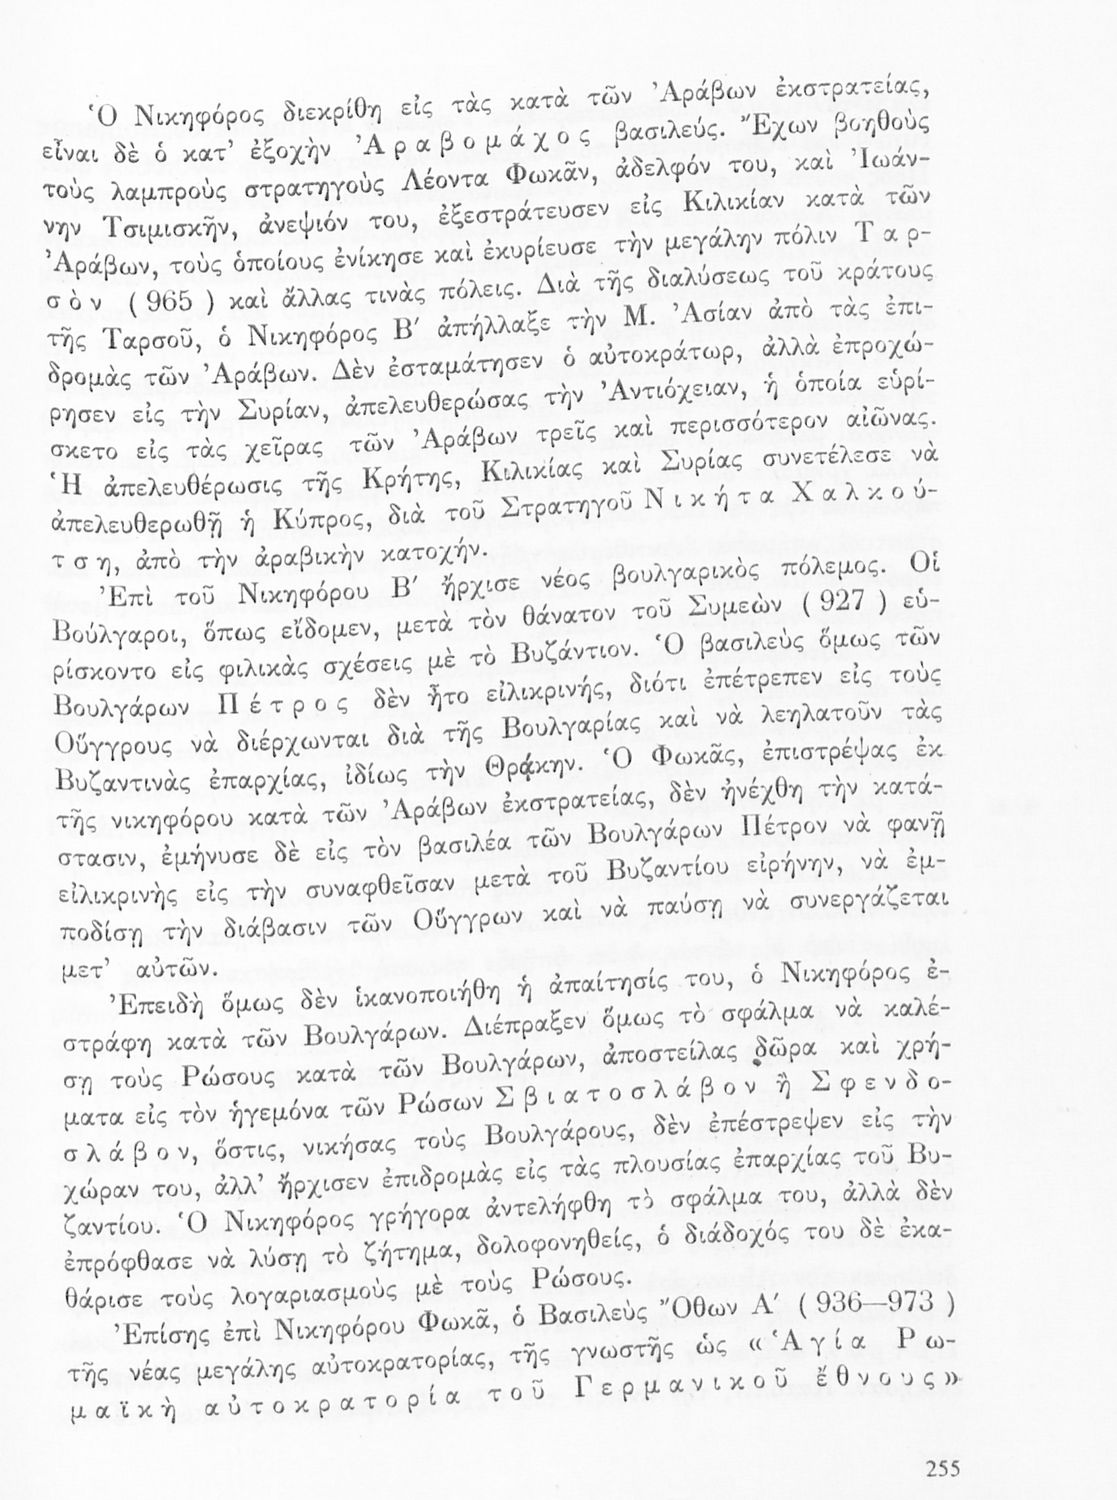 Ὁ Νικηφόρος διεκρίθη εἰς τὰς κατὰ τῶν Ἀράβων ἐκστρατείας,
εἶναι δὲ ὁ κατ’ ἐξοχὴν Ἀραβομάχος βασιλεύς. Ἔχων βοηθοὺς
τοὺς λαμπροὺς στρατηγοὺς Λέοντα Φωκᾶν, ἀδελφόν του, καὶ Ἰωάν-
νην Τσιμισκῆν, ἀνεψιόν του, ἐξεστράτευσεν εἰς Κιλικίαν κατὰ τῶν
Ἀράβων, τοὺς ὁποίους ἐνίκησε καὶ ἐκυρίευσε τὴν μεγάλην πόλιν Ταρ-
σὸν ( 965 ) καὶ ἄλλας τινὰς πόλεις. Διὰ τῆς διαλύσεως τοῦ κράτους
τῆς Ταρσοῦ, ὁ Νικηφόρος Β′ ἀπήλλαξε τὴν Μ. Ἀσίαν ἀπὸ τὰς ἐπι-
δρομὰς τῶν Ἀράβων. Δὲν ἐσταμάτησεν ὁ αὐτοκράτωρ, ἀλλὰ ἐπροχώ-
ρησεν εἰς τὴν Συρίαν, ἀπελευθερώσας τὴν Ἀντιόχειαν, ἡ ὁποία εὑρί-
σκετο εἰς τὰς χεῖρας τῶν Ἀράβων τρεῖς καὶ περισσότερον αἰῶνας.
Ἡ ἀπελευθέρωσις τῆς Κρήτης, Κιλικίας καὶ Συρίας συνετέλεσε νὰ
ἀπελευθερωθῇ ἡ Κύπρος, διὰ τοῦ Στρατηγοῦ Νικήτα Χαλκού-
τση, ἀπὸ τὴν ἀραβικὴν κατοχήν.
Ἐπὶ τοῦ Νικηφόρου Β′ ἤρχισε νέος βουλγαρικὸς πόλεμος. Οἱ
Βούλγαροι, ὅπως εἴδομεν, μετὰ τὸν θάνατον τοῦ Συμεὼν ( 927 ) εὑ-
ρίσκοντο εἰς φιλικὰς σχέσεις μὲ τὸ Βυζάντιον. Ὁ βασιλεὺς ὅμως τῶν
Βουλγάρων Πέτρος δὲν ἦτο εἰλικρινής, διότι ἐπέτρεπεν εἰς τοὺς
Οὔγγρους νὰ διέρχωνται διὰ τῆς Βουλγαρίας καὶ νὰ λεηλατοῦν τὰς
Βυζαντινὰς ἐπαρχίας, ἰδίως τὴν Θράκην. Ὁ Φωκᾶς, ἐπιστρέψας ἐκ
τῆς νικηφόρου κατὰ τῶν Ἀράβων ἐκστρατείας, δὲν ἠνέχθη τὴν κατά-
στασιν, ἐμήνυσε δὲ εἰς τὸν βασιλέα τῶν Βουλγάρων Πέτρον νὰ φανῇ
εἰλικρινὴς εἰς τὴν συναφθεῖσαν μετὰ τοῦ Βυζαντίου εἰρήνην, νὰ ἐμ-
ποδίσῃ τὴν διάβασιν τῶν Οὔγγρων καὶ νὰ παύσῃ νὰ συνεργάζεται
μετ’ αὐτῶν.
Ἐπειδὴ ὅμως δὲν ἱκανοποιήθη ἡ ἀπαίτησίς του, ὁ Νικηφόρος ἐ-
στράφη κατὰ τῶν Βουλγάρων. Διέπραξεν ὅμως τὸ σφάλμα νὰ καλέ-
σῃ τοὺς Ρώσους κατὰ τῶν Βουλγάρων, ἀποστείλας δῶρα καὶ χρή-
ματα εἰς τὸν ἡγεμόνα τῶν Ρώσων Σβιατοσλάβον ἢ Σφενδο-
σλάβον, ὅστις, νικήσας τοὺς Βουλγάρους, δὲν ἐπέστρεψεν εἰς τὴν
χώραν του, ἀλλ’ ἤρχισεν ἐπιδρομὰς εἰς τὰς πλουσίας ἐπαρχίας τοῦ Βυ-
ζαντίου. Ὁ Νικηφόρος γρήγορα ἀντελήφθη τὸ σφάλμα του, ἀλλὰ δὲν
ἐπρόφθασε νὰ λύσῃ τὸ ζήτημα, δολοφονηθείς, ὁ διάδοχός του δὲ ἐκα-
θάρισε τοὺς λογαριασμοὺς μὲ τοὺς Ρώσους.
Ἐπίσης ἐπὶ Νικηφόρου Φωκᾶ, ὁ Βασιλεὺς Ὄθων Α′ ( 936—973 )
τῆς νέας μεγάλης αὐτοκρατορίας, τῆς γνωστῆς ὡς « Ἁγία Ρω-
μαϊκὴ αὐτοκρατορία τοῦ Γερμανικοῦ ἔθνους»
255